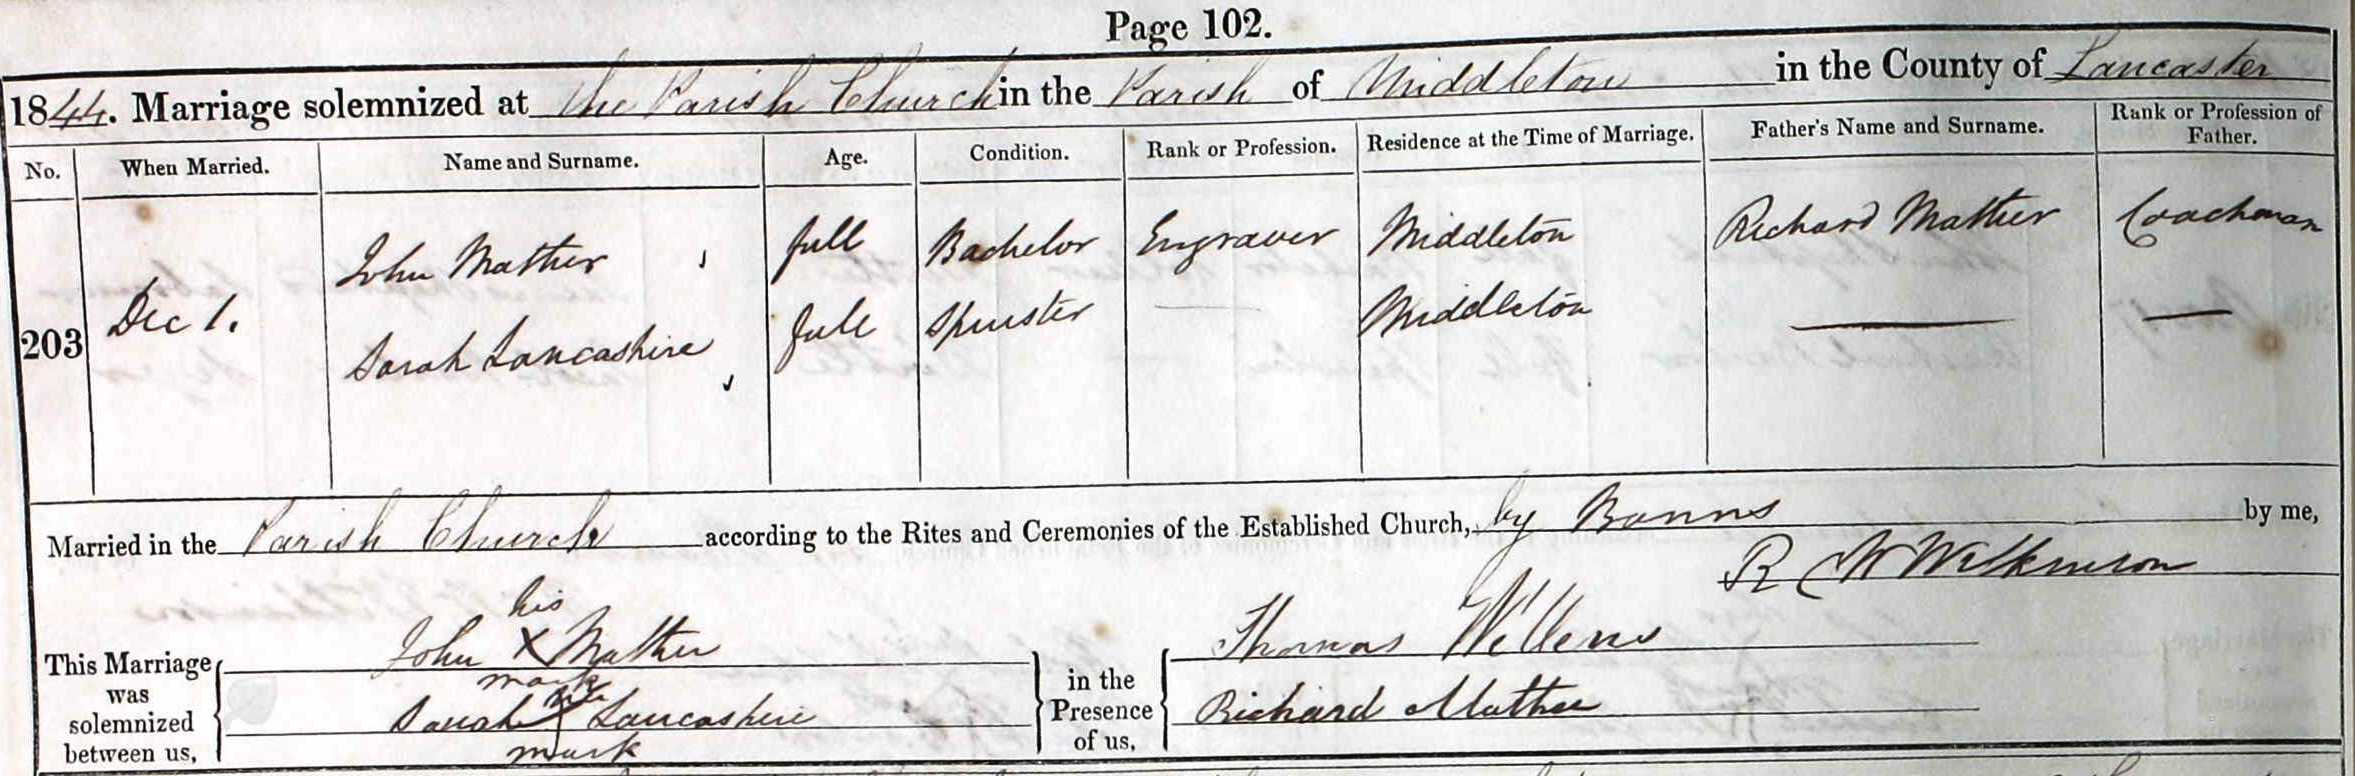 Page 102.
1844. Marriage solemnized at the Parish Church in the Parish of Middleton in the County of Lancaster
No. When Married. Name and Surname. Age. Condition. Rank or Profession. Residence at the Time of Marriage. Father's Name and Surname. Rank or Profession of Father.
John Mather full Bachelor Engraver Middleton Richard Mather Coachman
203 Dec 1.
Sarah Lancashire full Spinster — Middleton — —
Married in the Parish Church according to the Rites and Ceremonies of the Established Church, by Banns by me,
R Wilkinson
This Marriage was solemnized between us,
his
John X Mather
mark
Sarah X Lancashire
mark
in the Presence of us,
Thomas Wellens
Richard Mather